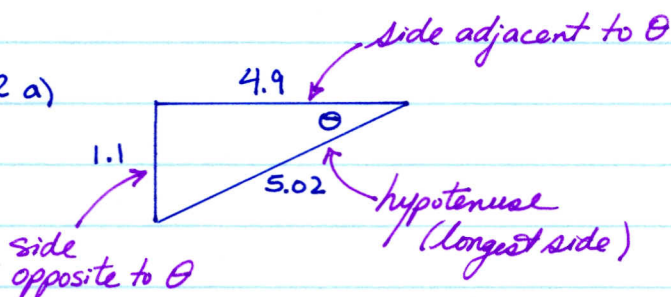 side adjacent to θ
2 a)
4.9
θ
1.1
5.02
hypotenuse
(longest side)
side
opposite to θ